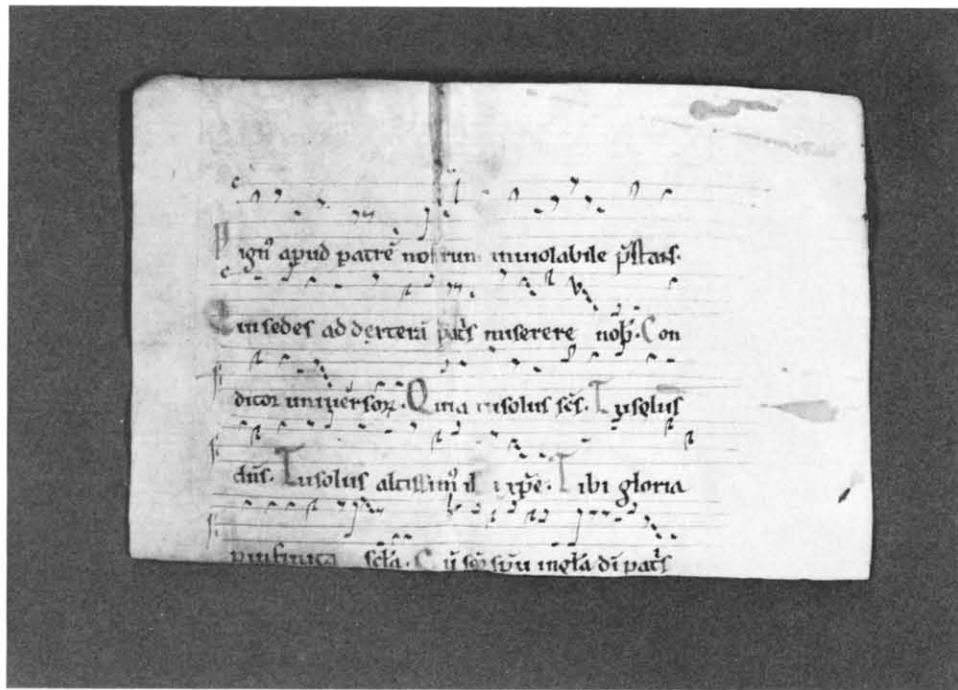 Pign⁹ apud patrē nostrum inviolabile p̄stans.
Qui sedes ad dexterā pat̄s miserere nob̄. Con
ditor universoꝝ. Quia tu solus sc̄s. Tu solus
dn̄s. Tu solus altissim⁹ ih̄u xp̄e. Tibi gloria
p̄ infinita sc̄la. Cū sc̄o sp̄u in gl̄a dī pat̄s